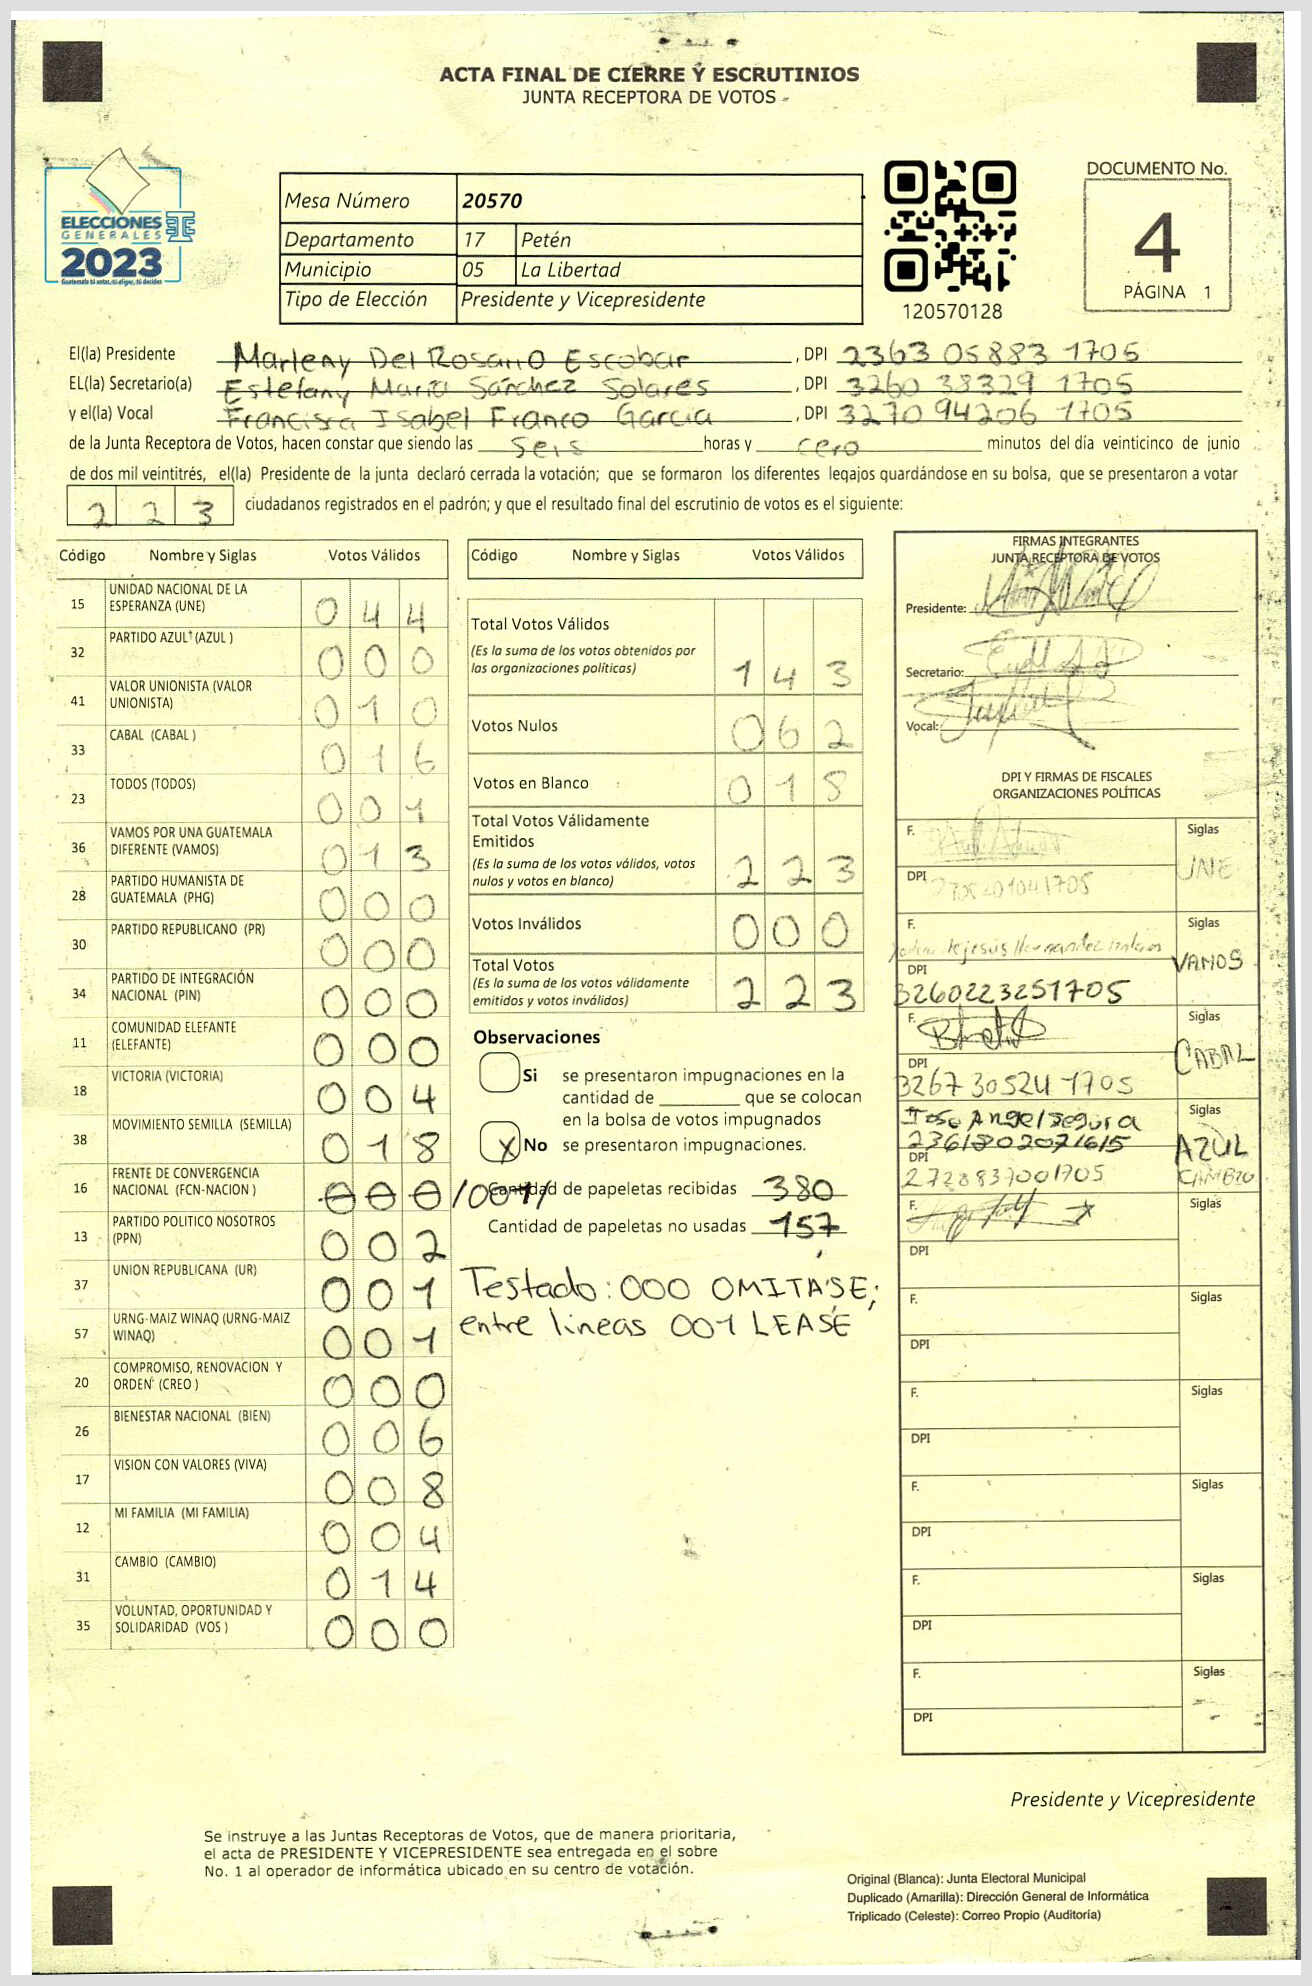 ACTA FINAL DE CIERRE Y ESCRUTINIOS
JUNTA RECEPTORA DE VOTOS
ELECCIONES
GENERALES
2023
Guatemala tú votas, tú eliges, tú decides
Mesa Número 20570
Departamento 17 Petén
Municipio 05 La Libertad
Tipo de Elección Presidente y Vicepresidente
120570128
DOCUMENTO No.
4
PÁGINA 1
El(la) Presidente Marleny Del Rosario Escobar, DPI 2363 05883 1705
EL(la) Secretario(a) Estefany María Sánchez Solares, DPI 3260 38329 1705
y el(la) Vocal Francisca Isabel Franco García, DPI 3270 94206 1705
de la Junta Receptora de Votos, hacen constar que siendo las seis horas y cero minutos del día veinticinco de junio
de dos mil veintitrés, el(la) Presidente de la junta declaró cerrada la votación; que se formaron los diferentes legajos guardándose en su bolsa, que se presentaron a votar
223 ciudadanos registrados en el padrón; y que el resultado final del escrutinio de votos es el siguiente:
Código Nombre y Siglas Votos Válidos
15 UNIDAD NACIONAL DE LA ESPERANZA (UNE) 044
32 PARTIDO AZUL (AZUL ) 000
41 VALOR UNIONISTA (VALOR UNIONISTA) 010
33 CABAL (CABAL ) 016
23 TODOS (TODOS) 001
36 VAMOS POR UNA GUATEMALA DIFERENTE (VAMOS) 013
28 PARTIDO HUMANISTA DE GUATEMALA (PHG) 000
30 PARTIDO REPUBLICANO (PR) 000
34 PARTIDO DE INTEGRACIÓN NACIONAL (PIN) 000
11 COMUNIDAD ELEFANTE (ELEFANTE) 000
18 VICTORIA (VICTORIA) 004
38 MOVIMIENTO SEMILLA (SEMILLA) 018
16 FRENTE DE CONVERGENCIA NACIONAL (FCN-NACION ) 000 /001/
13 PARTIDO POLITICO NOSOTROS (PPN) 002
37 UNION REPUBLICANA (UR) 001
57 URNG-MAIZ WINAQ (URNG-MAIZ WINAQ) 001
20 COMPROMISO, RENOVACION Y ORDEN (CREO ) 000
26 BIENESTAR NACIONAL (BIEN) 006
17 VISION CON VALORES (VIVA) 008
12 MI FAMILIA (MI FAMILIA) 004
31 CAMBIO (CAMBIO) 014
35 VOLUNTAD, OPORTUNIDAD Y SOLIDARIDAD (VOS ) 000
Código Nombre y Siglas Votos Válidos
Total Votos Válidos
(Es la suma de los votos obtenidos por
las organizaciones políticas) 143
Votos Nulos 062
Votos en Blanco 018
Total Votos Válidamente
Emitidos
(Es la suma de los votos válidos, votos
nulos y votos en blanco) 223
Votos Inválidos 000
Total Votos
(Es la suma de los votos válidamente
emitidos y votos inválidos) 223
Observaciones
Si se presentaron impugnaciones en la
cantidad de ________ que se colocan
en la bolsa de votos impugnados
X No se presentaron impugnaciones.
Cantidad de papeletas recibidas 380
Cantidad de papeletas no usadas 157
Testado: 000 OMITASE;
entre lineas 001 LEASE
FIRMAS INTEGRANTES
JUNTA RECEPTORA DE VOTOS
Presidente:
Secretario:
Vocal:
DPI Y FIRMAS DE FISCALES
ORGANIZACIONES POLÍTICAS
F. Siglas
DPI UNE
F. Siglas
VAMOS
DPI
3260223251705
F. Siglas
CABAL
DPI
3267 30524 1705
Jose Angel Segura Siglas
AZUL
DPI
2728837001705 CAMBIO
F. Siglas
DPI
F. Siglas
DPI
F. Siglas
DPI
F. Siglas
DPI
F. Siglas
DPI
F. Siglas
DPI
Presidente y Vicepresidente
Se instruye a las Juntas Receptoras de Votos, que de manera prioritaria,
el acta de PRESIDENTE Y VICEPRESIDENTE sea entregada en el sobre
No. 1 al operador de informática ubicado en su centro de votación.
Original (Blanca): Junta Electoral Municipal
Duplicado (Amarilla): Dirección General de Informática
Triplicado (Celeste): Correo Propio (Auditoría)